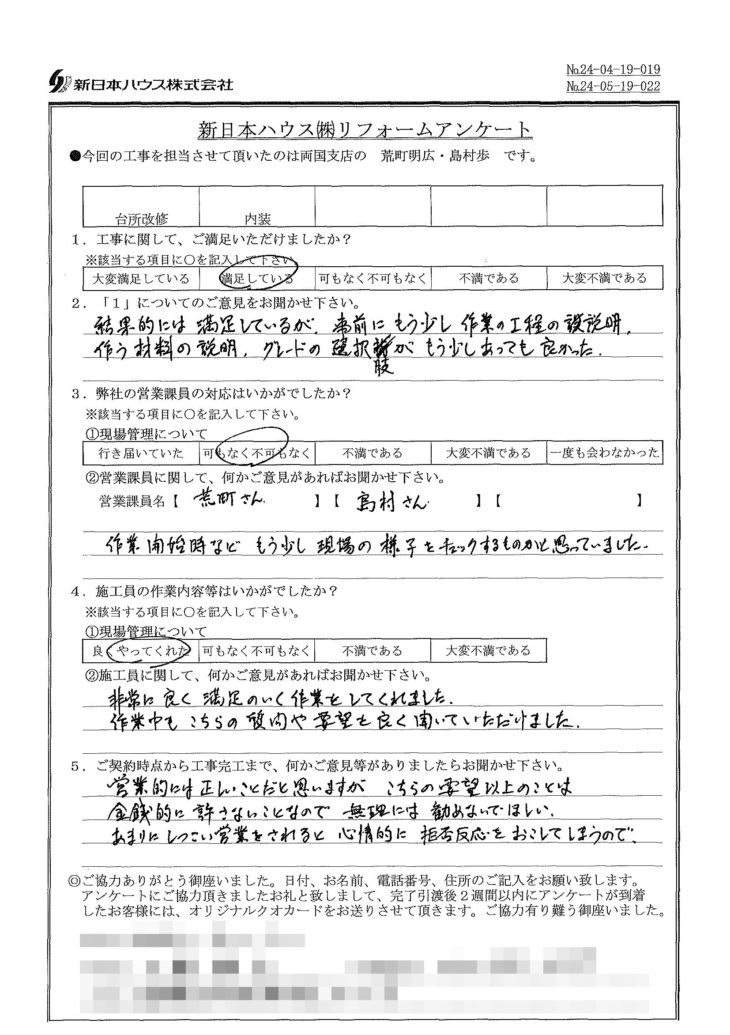 新日本ハウス株式会社
№24-04-19-019
№24-05-19-022
新日本ハウス㈱リフォームアンケート
●今回の工事を担当させて頂いたのは両国支店の 荒町明広・島村歩 です。
台所改修 内装
1．工事に関して、ご満足いただけましたか？
※該当する項目に○を記入して下さい
大変満足している 満足している 可もなく不可もなく 不満である 大変不満である
2．「1」についてのご意見をお聞かせ下さい。
結果的には満足しているが、事前にもう少し作業の工程の設説明、
作う材料の説明、グレードの選択肢がもう少しあっても良かった。
3．弊社の営業課員の対応はいかがでしたか？
※該当する項目に○を記入して下さい。
①現場管理について
行き届いていた 可もなく不可もなく 不満である 大変不満である 一度も会わなかった
②営業課員に関して、何かご意見があればお聞かせ下さい。
営業課員名【 荒町さん 】【 島村さん 】【 】
作業開始時などもう少し現場の様子をチェックするものかと思っていました。
4．施工員の作業内容等はいかがでしたか？
※該当する項目に○を記入して下さい。
①現場管理について
良くやってくれた 可もなく不可もなく 不満である 大変不満である
②施工員に関して、何かご意見があればお聞かせ下さい。
非常に良く満足のいく作業をしてくれました。
作業中もこちらの質問や要望を良く聞いていただけました。
5．ご契約時点から工事完工まで、何かご意見等がありましたらお聞かせ下さい。
営業的には正しいことだと思いますがこちらの要望以上のことは
金銭的に許さないことなので無理には勧めないでほしい。
あまりにしつこい営業をされると心情的に拒否反応をおこしてしまうので。
◎ご協力ありがとう御座いました。日付、お名前、電話番号、住所のご記入をお願い致します。
アンケートにご協力頂きましたお礼と致しまして、完了引渡後2週間以内にアンケートが到着
したお客様には、オリジナルクオカードをお送りさせて頂きます。ご協力有り難う御座いました。